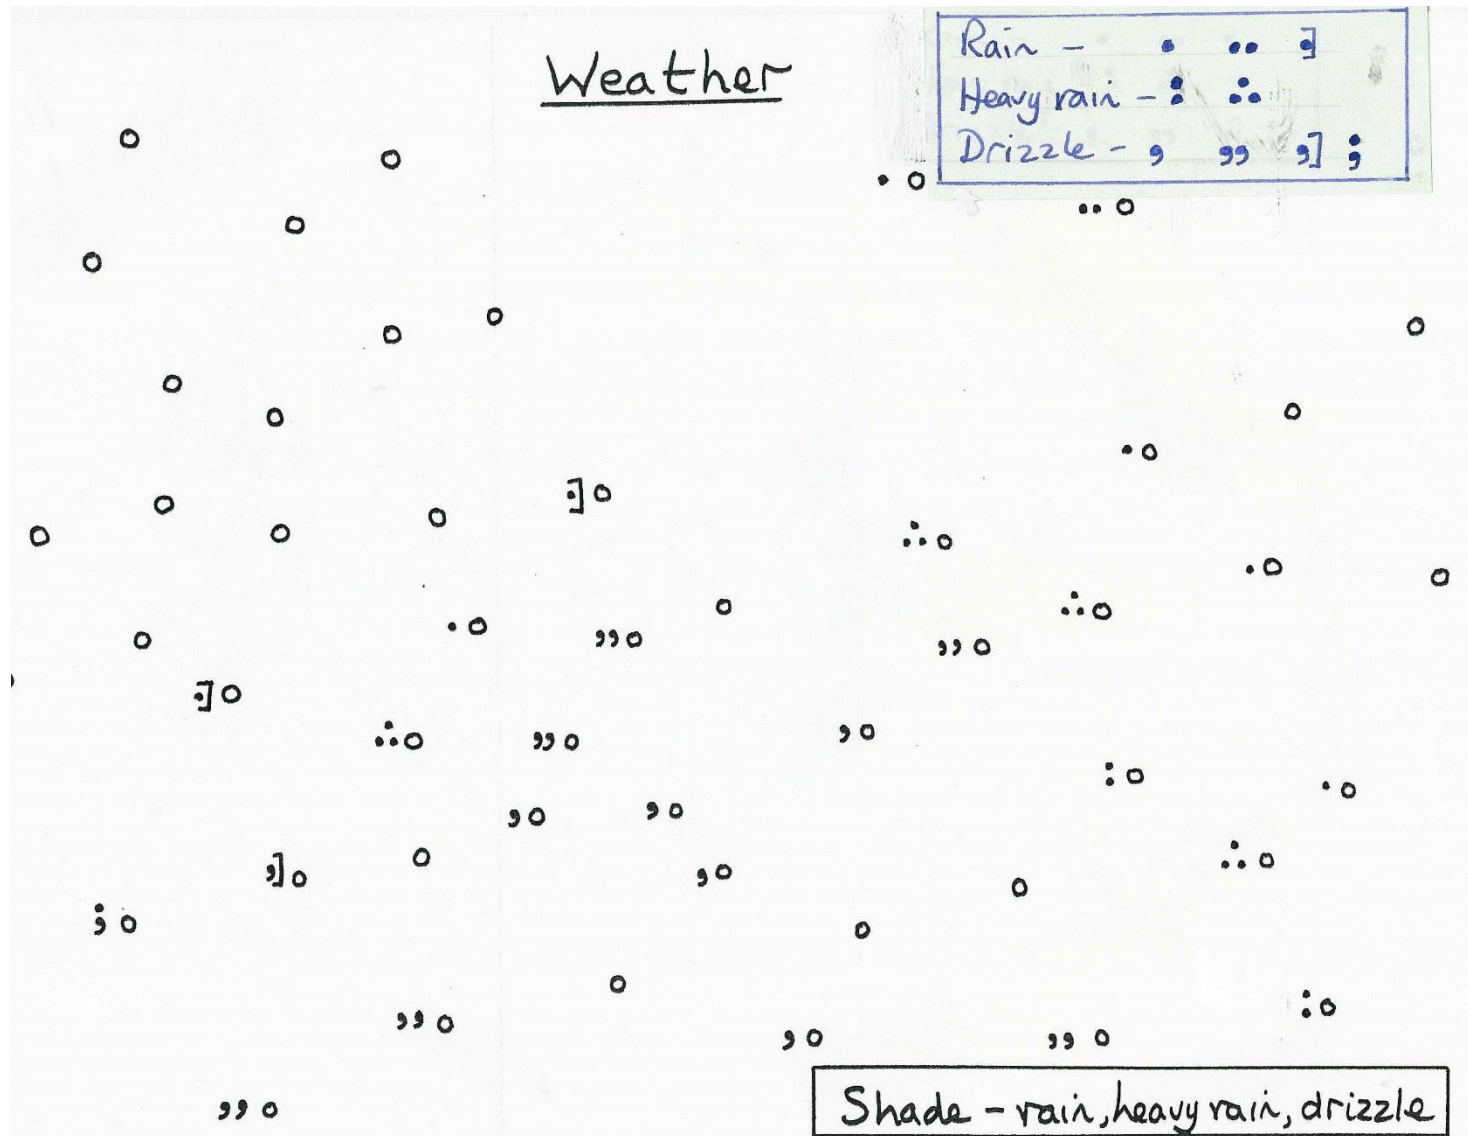 Weather
Rain - • •• •]
Heavy rain - : ∴
Drizzle - , ,, ,] ;
Shade - rain, heavy rain, drizzle